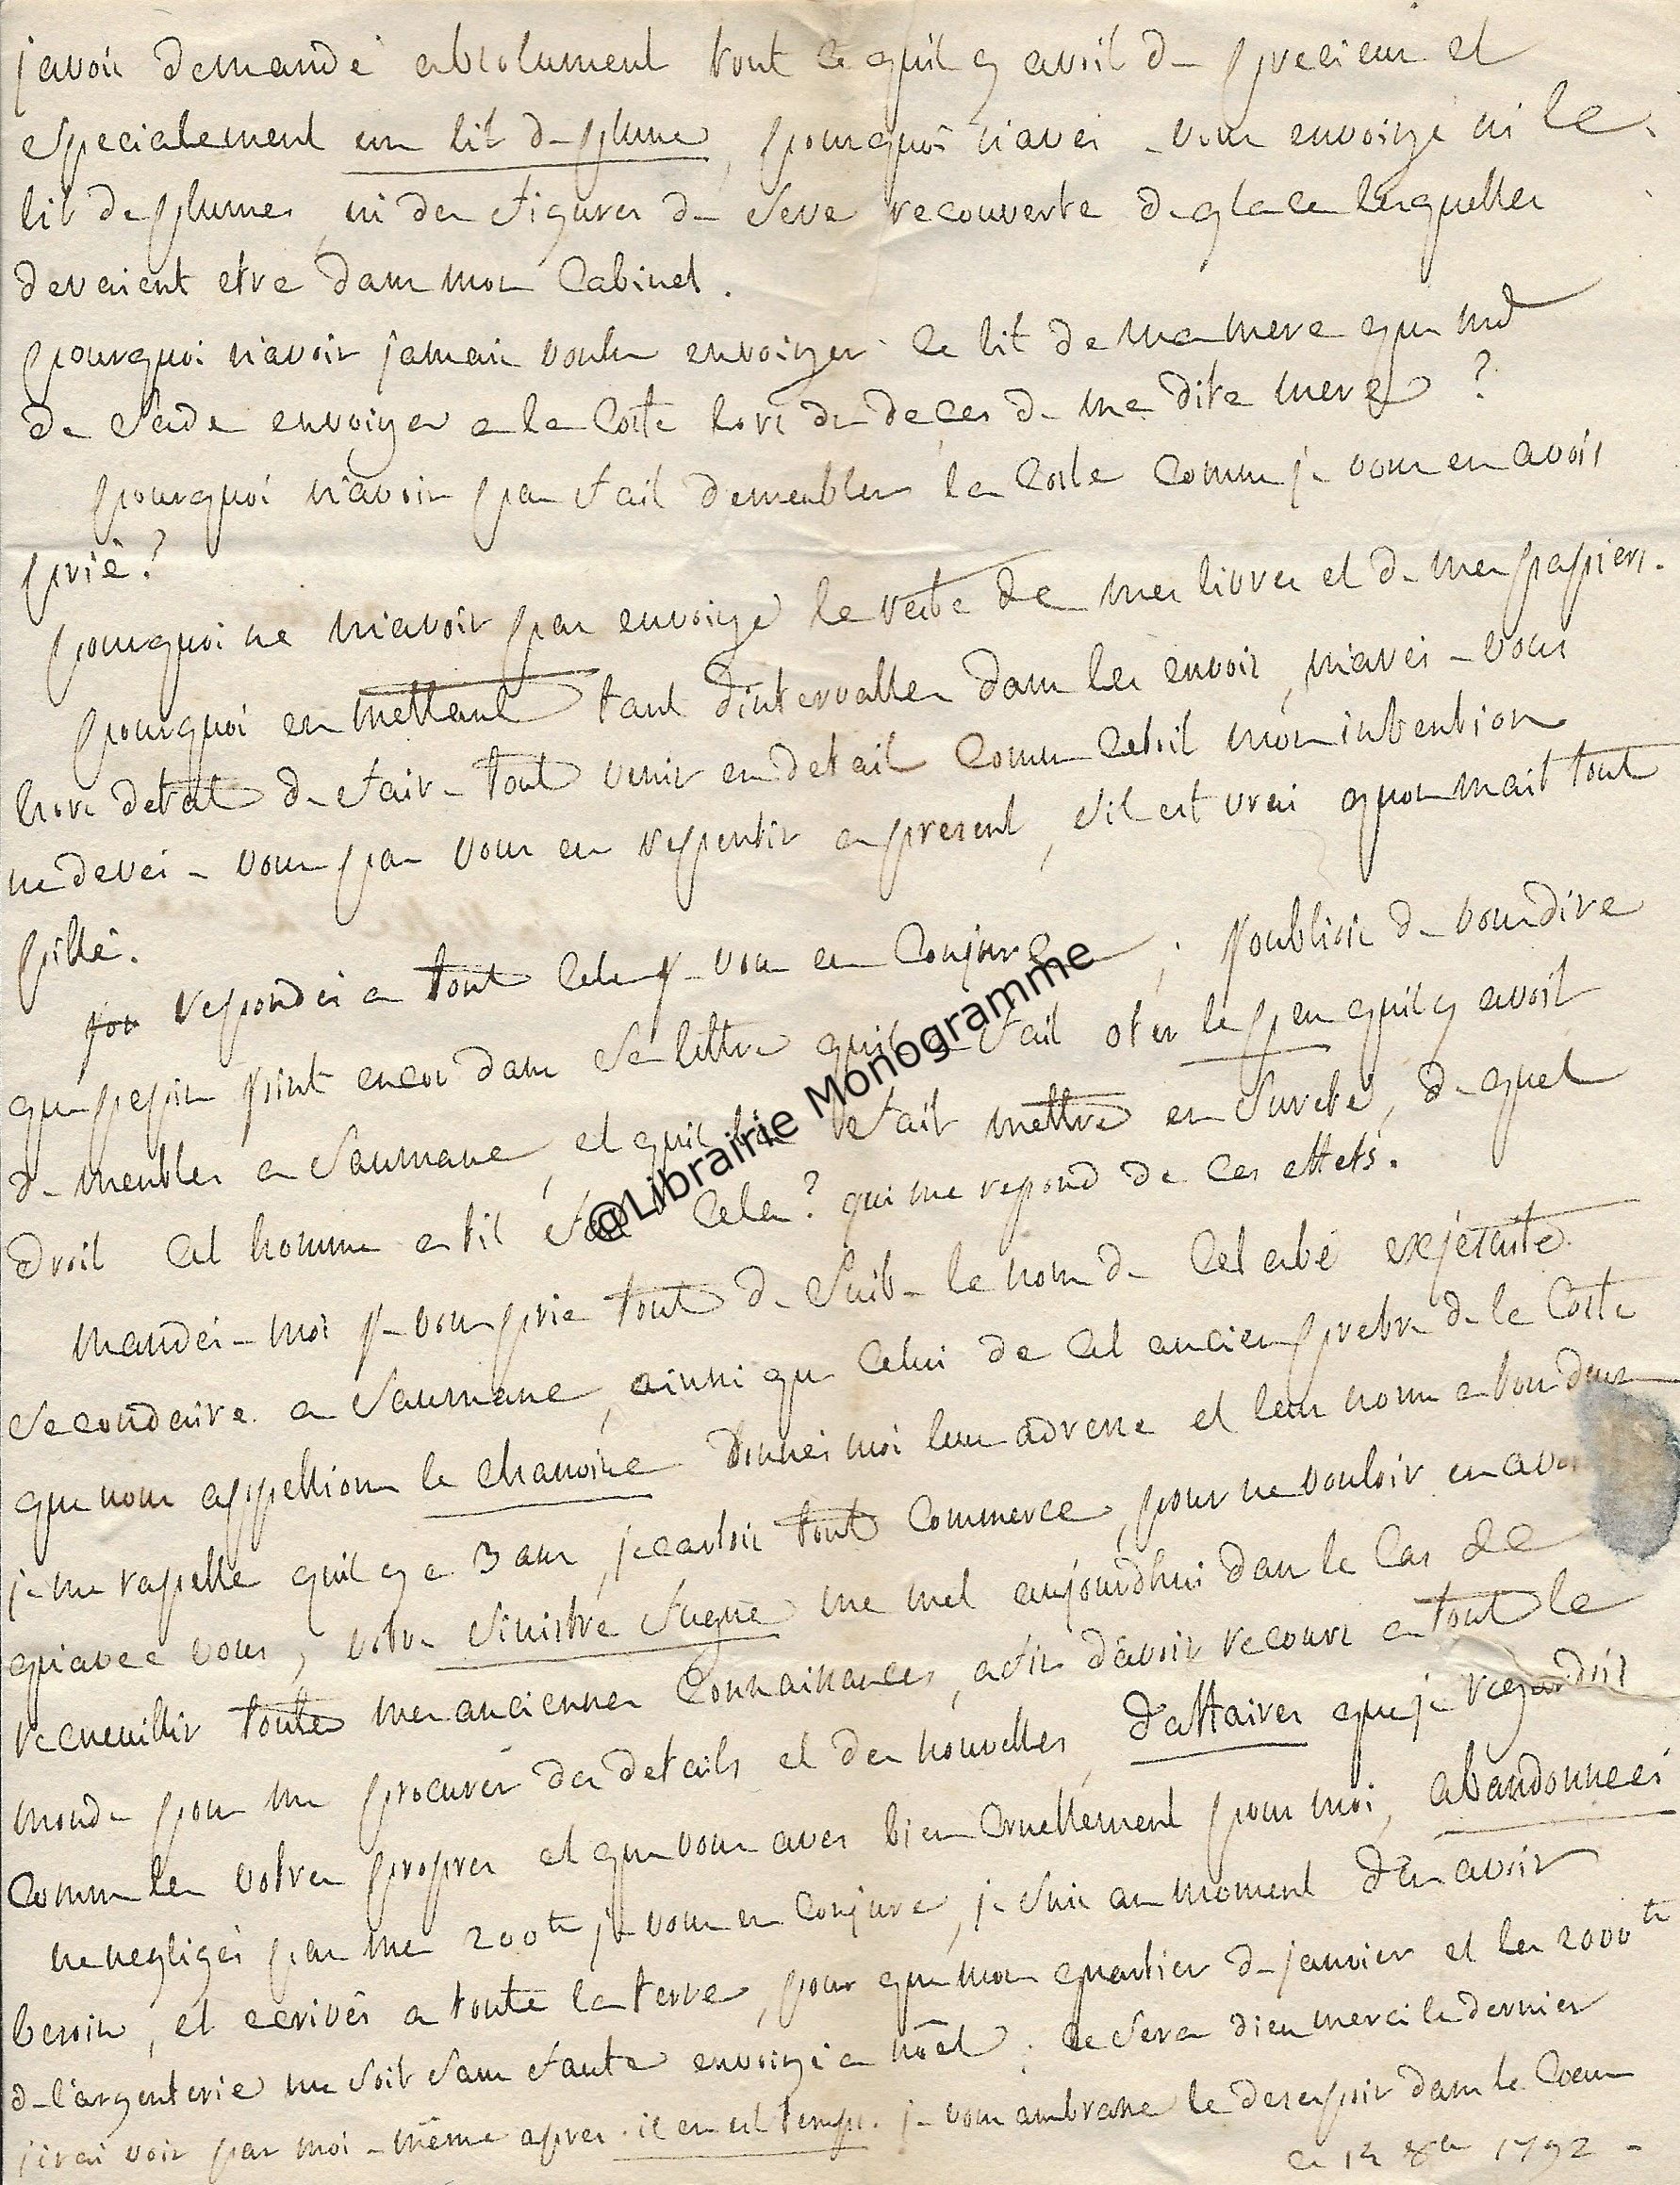 j'avois demandé absolument tout ce quil y avoit de precieux et
especialement un lit de plume, pourquoi n'avés-vous envoiyé ni le
lit de plumes, ni des figures de seve recouverte de glace lesquelles
devaient etre dans mon cabinet.
pourquoi n'avoir jamais voulu envoiyer le lit de ma mere que md
de sade envoiyer a la Coste lors du deces de ma dite mere ?
pourquoi n'avoir pas fait demeubler la Coste comme je vous en avois
prié ?
pourquoi ne m'avoir pas envoiyé le reste de mes livres et de mes papiers.
pourquoi en mettant tant dintervalles dans les envois, m'avés-vous
hors detat de faire tout venir en detail comme cetoit mon intention
ne devés-vous pas vous en repentir a present, s'il est vrai quon m'ait tout
pillé.
pou repondés a tout cela je vous en conjure ; j'oubliois de vous dire
que pepin dans sa lettre quil a fait oter le peu quil y avoit
de meubles a Saumane, et quil les a fait mettre en sureté, de quel
droit cet homme a til fait cela ? qui me repond de ces effets.
mandés-moi je vous prie tout de suite le nom de cet abé exjésuite
secondaire a Saumane, ainsi que celui de cet ancien pretre de la Coste
que nous appellions le chanoine donnés moi leur adresse et leur nom a tous deux
je me rapelle quil y a 3 ans, jecartois tout commerce, pour ne vouloir en avoir
qu'avec vous, votre sinistre fugue me met aujourdhui dans le cas de
recueuillir toutes mes anciennes connaissances, afin d'avoir recours a tout le
monde pour me procurer des details et des nouvelles, d'affaires que je regardois
comme les votres propres et que vous avés bien cruellement pour moi, abandonnées
ne negligés pas mes 200 tt je vous en conjure, je suis au moment d'en avoir
besoin, et ecrivés a toute la terre, pour que mon quartier de janvier et les 2000 tt
de l'argenterie me soit sans faute envoiyé a nöel ; ce sera dieu merci le dernier
j'irai voir par moi-même apres. il en est temps. je vous ambrasse le desespoir dans le coeur
ce 8bre 1792 -
@Librairie Monogramme